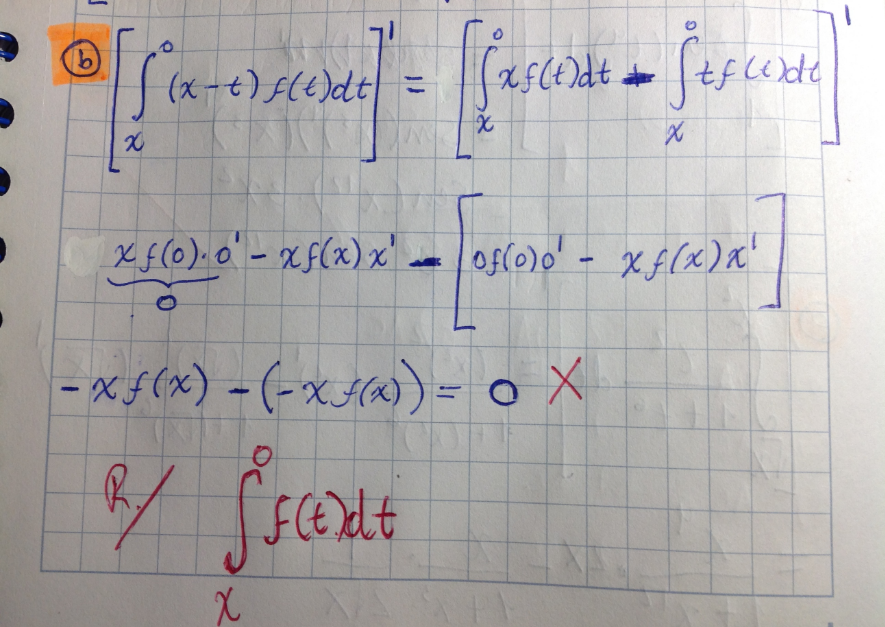 b [∫ₓ⁰ (x-t) f(t)dt]' = [∫ₓ⁰ x f(t)dt - ∫ₓ⁰ t f(t)dt]'
x f(0)·0' - x f(x) x' - [0f(0)0' - x f(x) x']
0
-x f(x) - (-x f(x)) = 0 X
R/ ∫ₓ⁰ f(t)dt